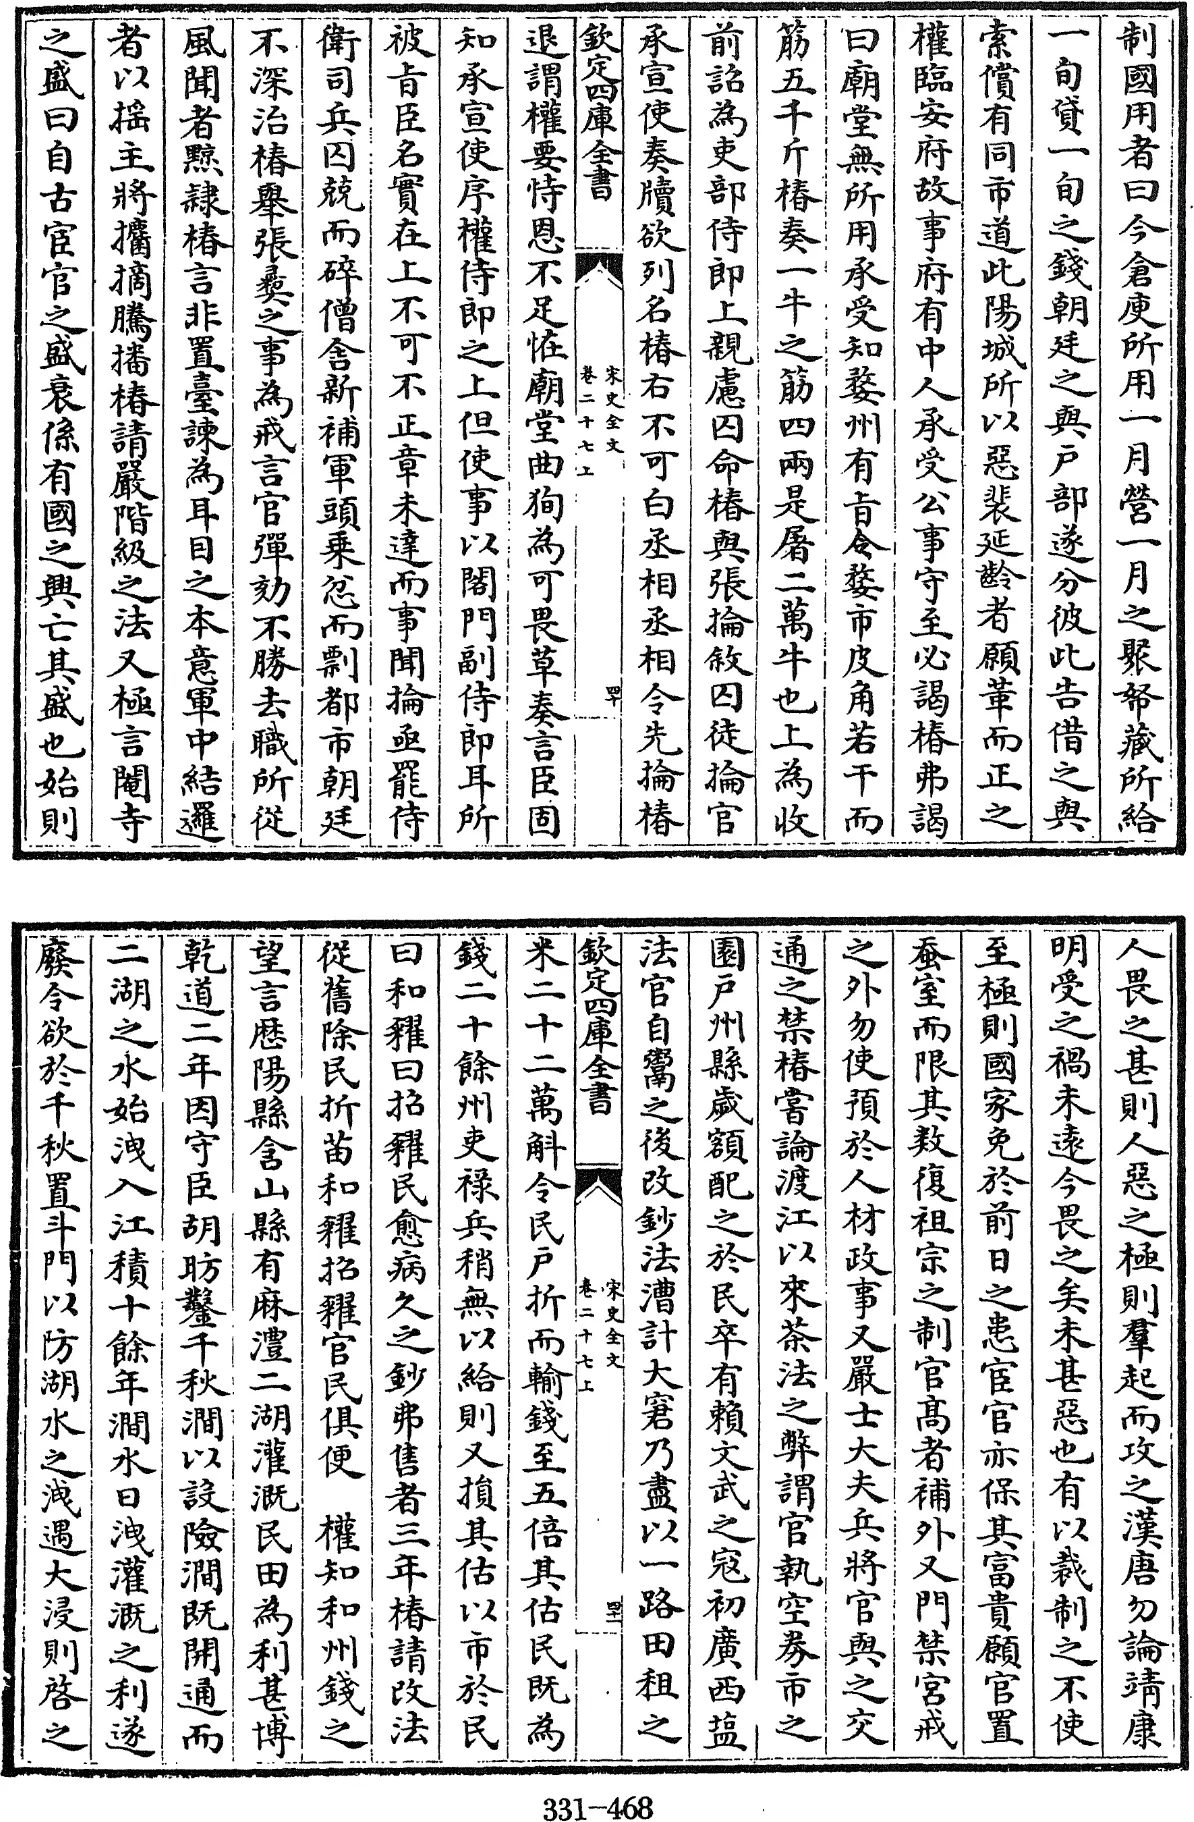 制國用者曰今倉庾所用一月營一月之聚帑藏所給
一旬貸一旬之錢朝廷之與户部遂分彼此告借之與
索償有同市道此陽城所以惡裴延齡者願革而正之
權臨安府故事府有中人承受公事守至必謁椿弗謁
曰廟堂無所用承受知婺州有㫖令婺市皮角若干而
筋五千斤椿奏一牛之筋四兩是屠二萬牛也上為收
前詔為吏部侍郎上親慮囚命椿與張掄敘囚徒掄官
承宣使奏牘欲列名椿右不可白丞相丞相令先掄椿
欽定四庫全書
宋史全文
卷二十七上
四十
退謂權要恃恩不足怪廟堂曲狥為可畏草奏言臣固
知承宣使序權侍郎之上但使事以閤門副侍郎耳所
被㫖臣名實在上不可不正章未達而事聞掄亟罷侍
衛司兵囚兢而碎僧舍新補軍頭乗忿而剽都市朝廷
不深治椿舉張彛之事為戒言官彈劾不勝去職所從
風聞者黥隸椿言非置臺諫為耳目之本意軍中結邏
者以揺主將攟摘騰播椿請嚴階級之法又極言閹寺
之盛曰自古宦官之盛衰係有國之興亡其盛也始則
人畏之甚則人惡之極則羣起而攻之漢唐勿論靖康
明受之禍未遠今畏之矣未甚惡也有以裁制之不使
至極則國家免於前日之患宦官亦保其富貴願官置
蠶室而限其数復祖宗之制官髙者補外又門禁宮戒
之外勿使預於人材政事又嚴士大夫兵將官與之交
通之禁椿嘗論渡江以來茶法之弊謂官執空券市之
園户州縣歳額配之於民卒有賴文武之冦初廣西鹽
法官自鬻之後改鈔法漕計大窘乃盡以一路田租之
欽定四庫全書
宋史全文
卷二十七上
四十一
米二十二萬斛令民户折而輸錢至五倍其估民既為
錢二十餘州吏禄兵稍無以給則又損其估以市於民
曰和糴曰招糴民愈病久之鈔弗售者三年椿請改法
從舊除民折苗和糴招糴官民俱便　權知和州錢之
望言歴陽縣含山縣有麻澧二湖灌溉民田為利甚博
乾道二年因守臣胡昉鑿千秋澗以設險澗既開通而
二湖之水始洩入江積十餘年澗水日洩灌溉之利遂
廢今欲於千秋置斗門以防湖水之洩遇大浸則啓之
331-468